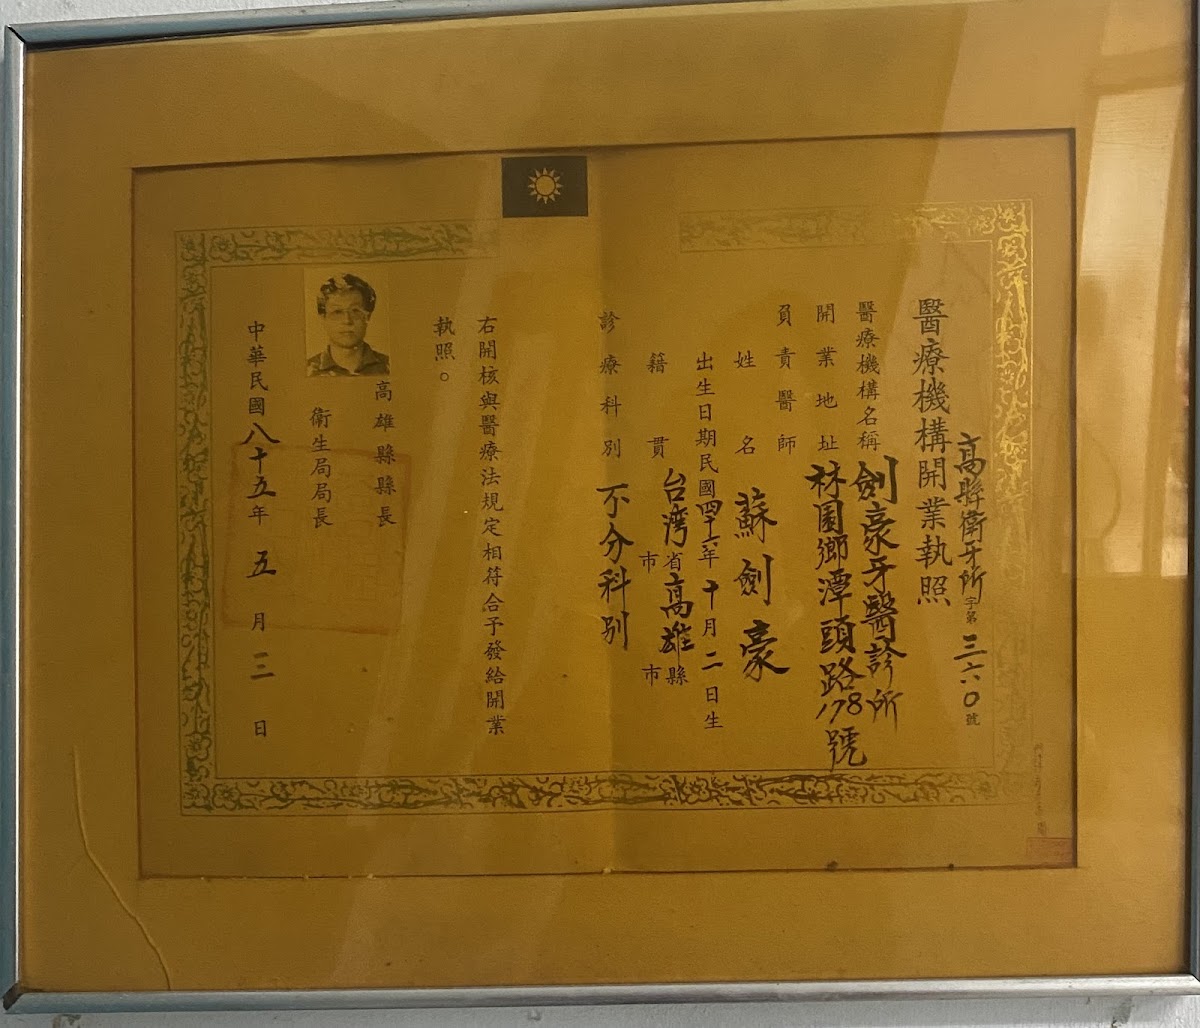 醫療機構開業執照
高縣衛牙所字第三六〇號
醫療機構名稱 劍豪牙醫診所
開業地址 林園鄉潭頭路178號
負責醫師
姓名 蘇劍豪
出生日期民國四十六年十月二日生
籍貫 台灣省市高雄縣市
診療科別 不分科別
右開核與醫療法規定相符合予發給開業
執照。
高雄縣縣長
衛生局局長
中華民國八十五年五月三日